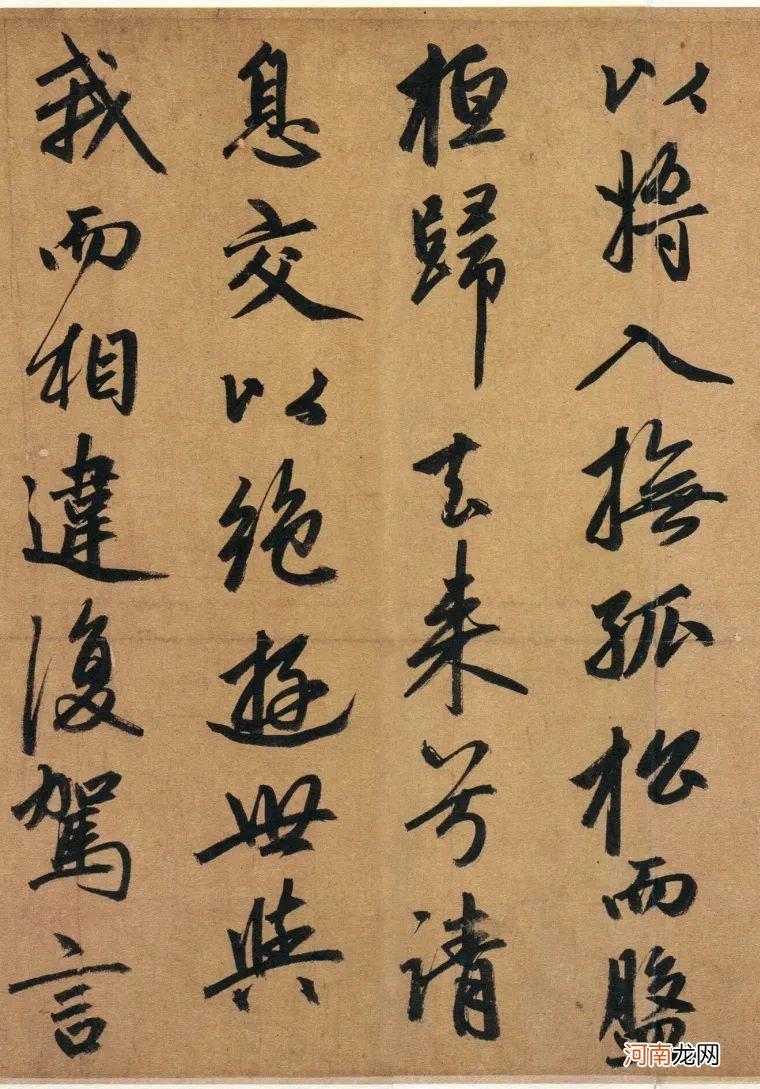 以将入撫孤松而盤
桓歸去来兮請
息交以绝逰世與
我而相違復駕言
河南龙网